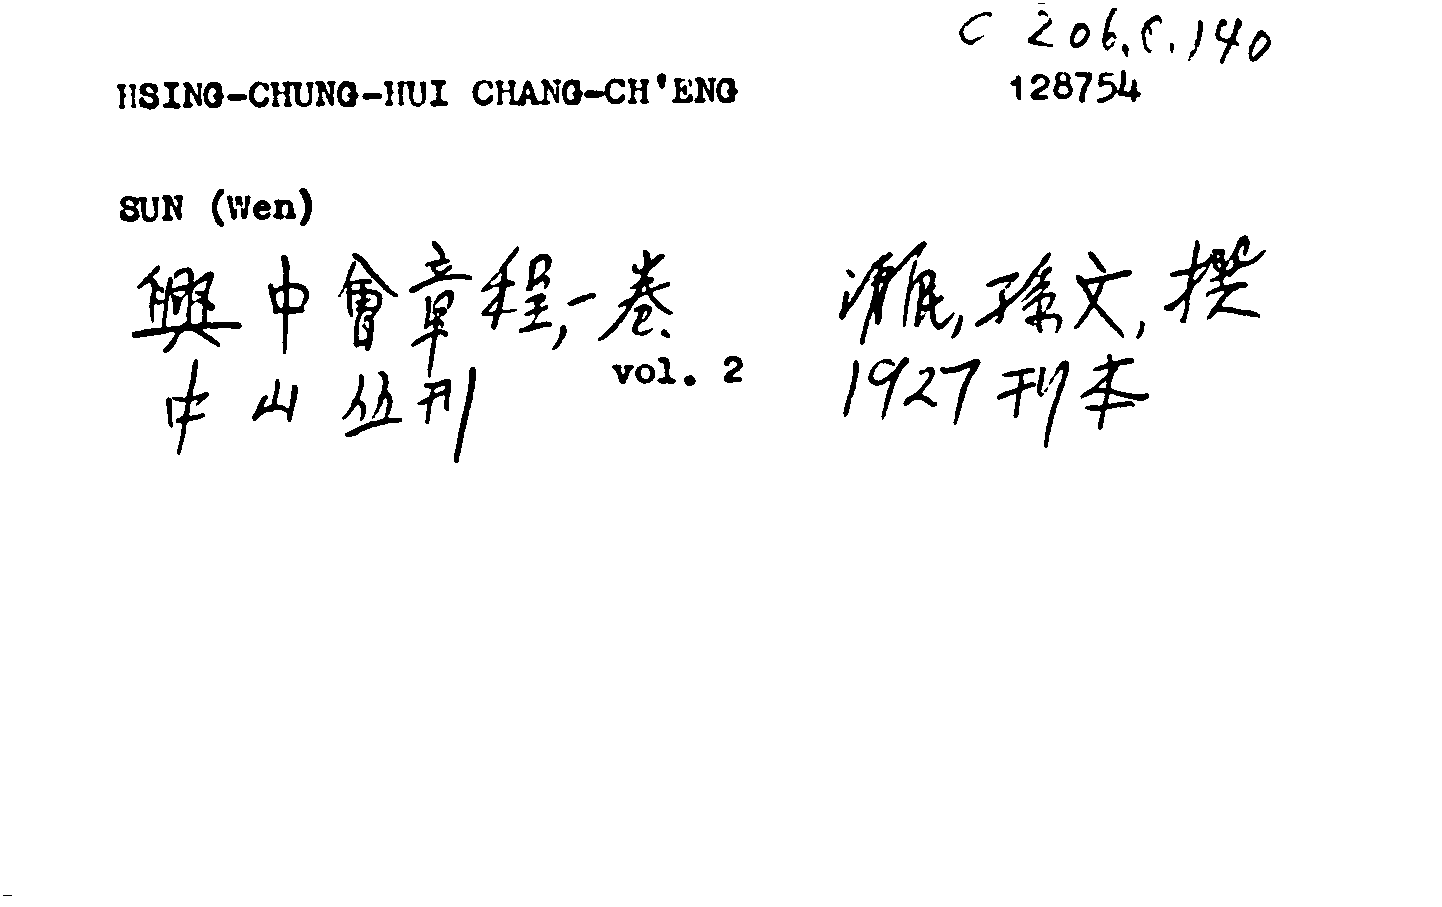 C 206.C.140
HSING-CHUNG-HUI CHANG-CH'ENG 128754
SUN (Wen)
興中會章程,一卷 清民,孫文,撰
vol. 2
中山丛刊 1927刊本